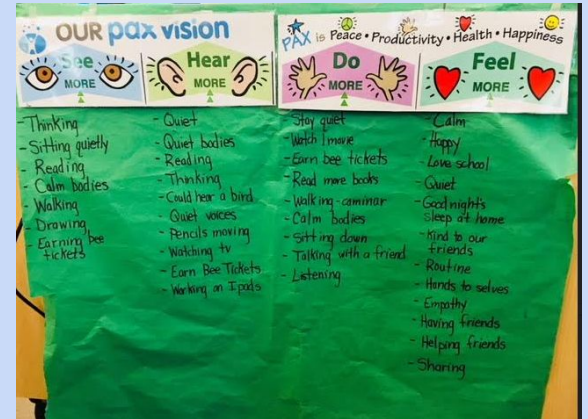 OUR pax vision
PAX is Peace • Productivity • Health • Happiness
See
MORE
Hear
MORE
Do
MORE
Feel
MORE
- Thinking
- Sitting quietly
- Reading
- Calm bodies
- Walking
- Drawing
- Earning bee
tickets
- Quiet
- Quiet bodies
- Reading
- Thinking
- Could hear a bird
- Quiet voices
- Pencils moving
- Watching tv
- Earn Bee Tickets
- Working on Ipads
- Stay quiet
- Watch 1 movie
- Earn bee tickets
- Read more books
- Walking-caminar
- Calm bodies
- Sitting down
- Talking with a friend
- Listening
- Calm
- Happy
- Love school
- Quiet
- Good nights
sleep at home
- Kind to our
friends
- Routine
- Hands to selves
- Empathy
- Having friends
- Helping friends
- Sharing